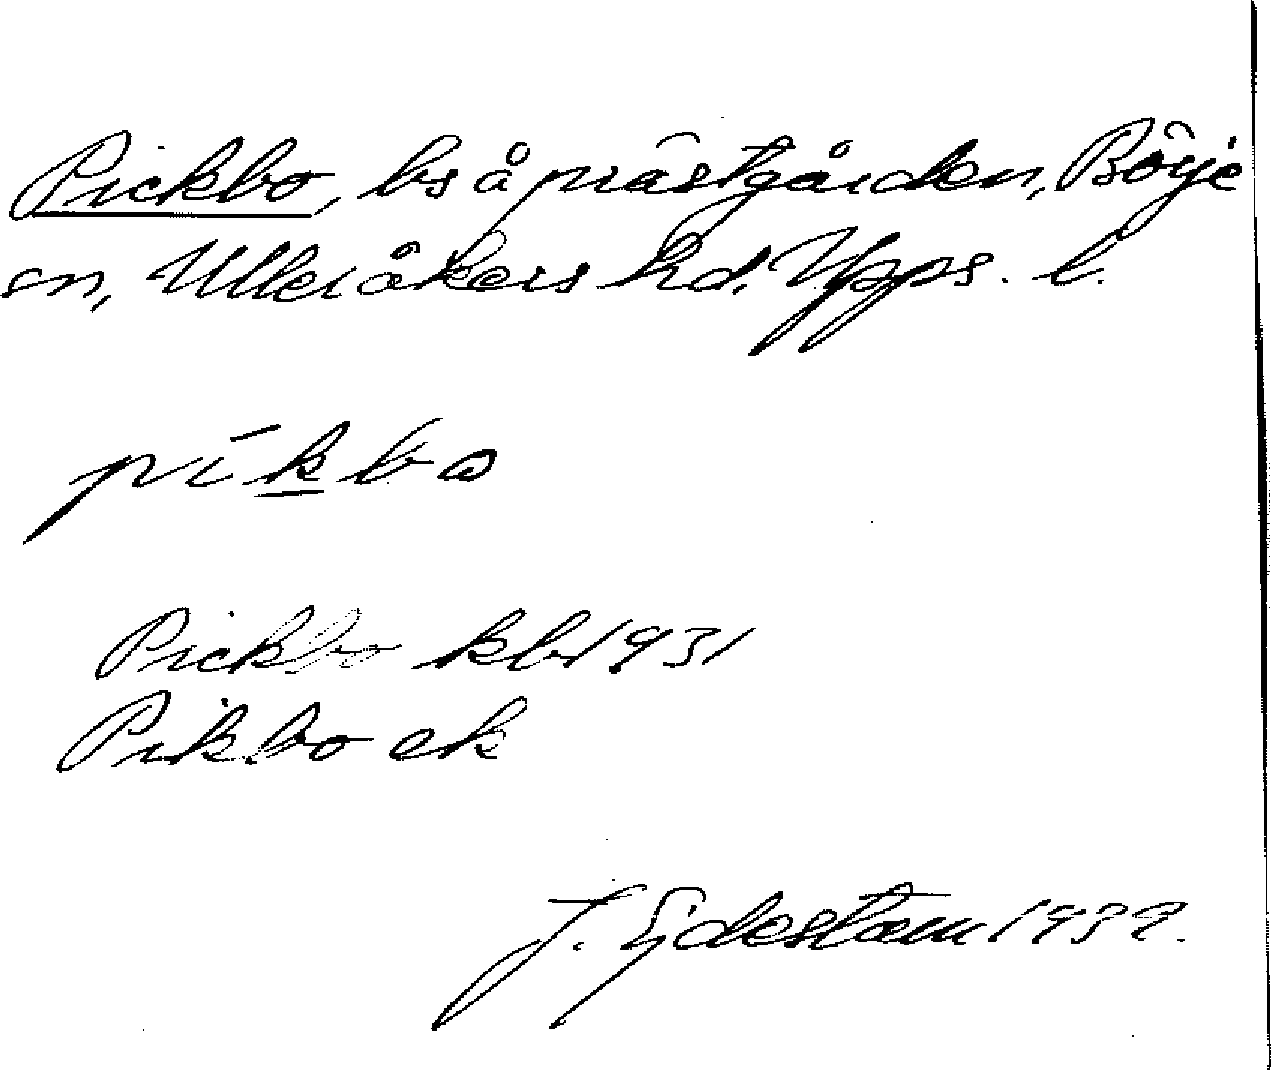 Pickbo, bs å prästgården, Börje
sn, Ulleråkers hd. Upps. l.
pīkbo
Pickbo kb 1931
Pikbo ek
J. Ejdestam 1939.